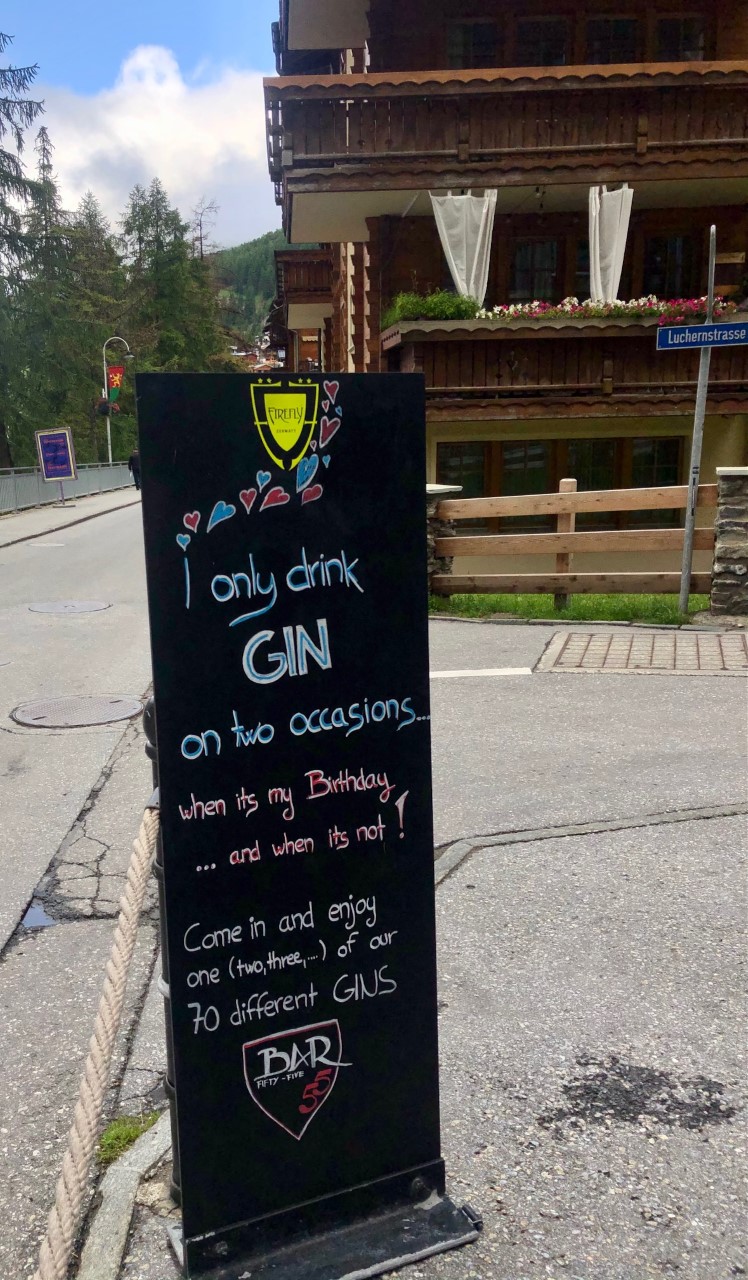 FIREFLY
ZERMATT
I only drink
GIN
on two occasions...
when its my Birthday
... and when its not !
Come in and enjoy
one (two,three,....) of our
70 different GINS
BAR
FIFTY-FIVE
55
Luchernstrasse